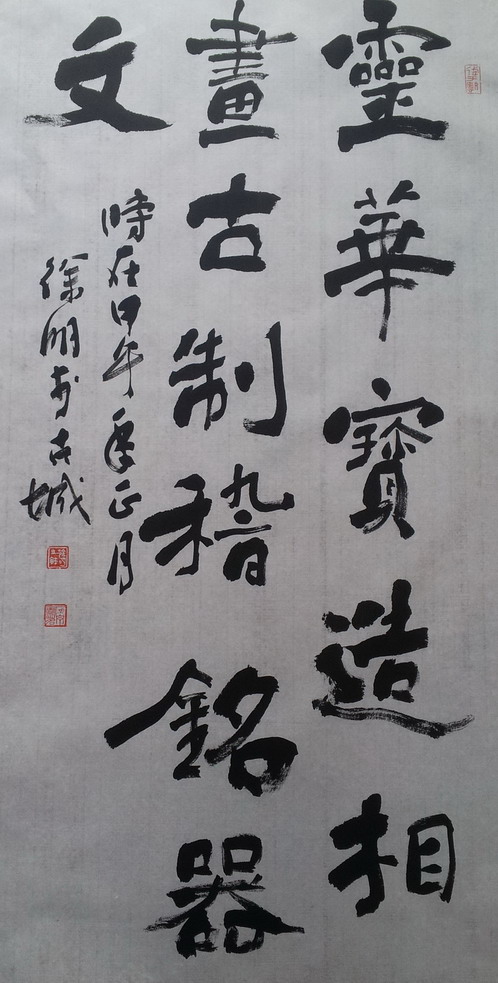 靈華寶造相
畫古制稽銘器
文
時在甲午年正月
徐明於古城